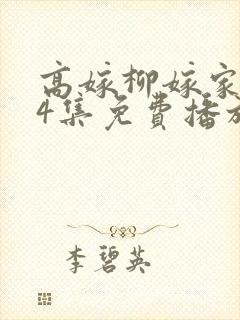 高嫁柳嫁家
4集免费播放
李碧英